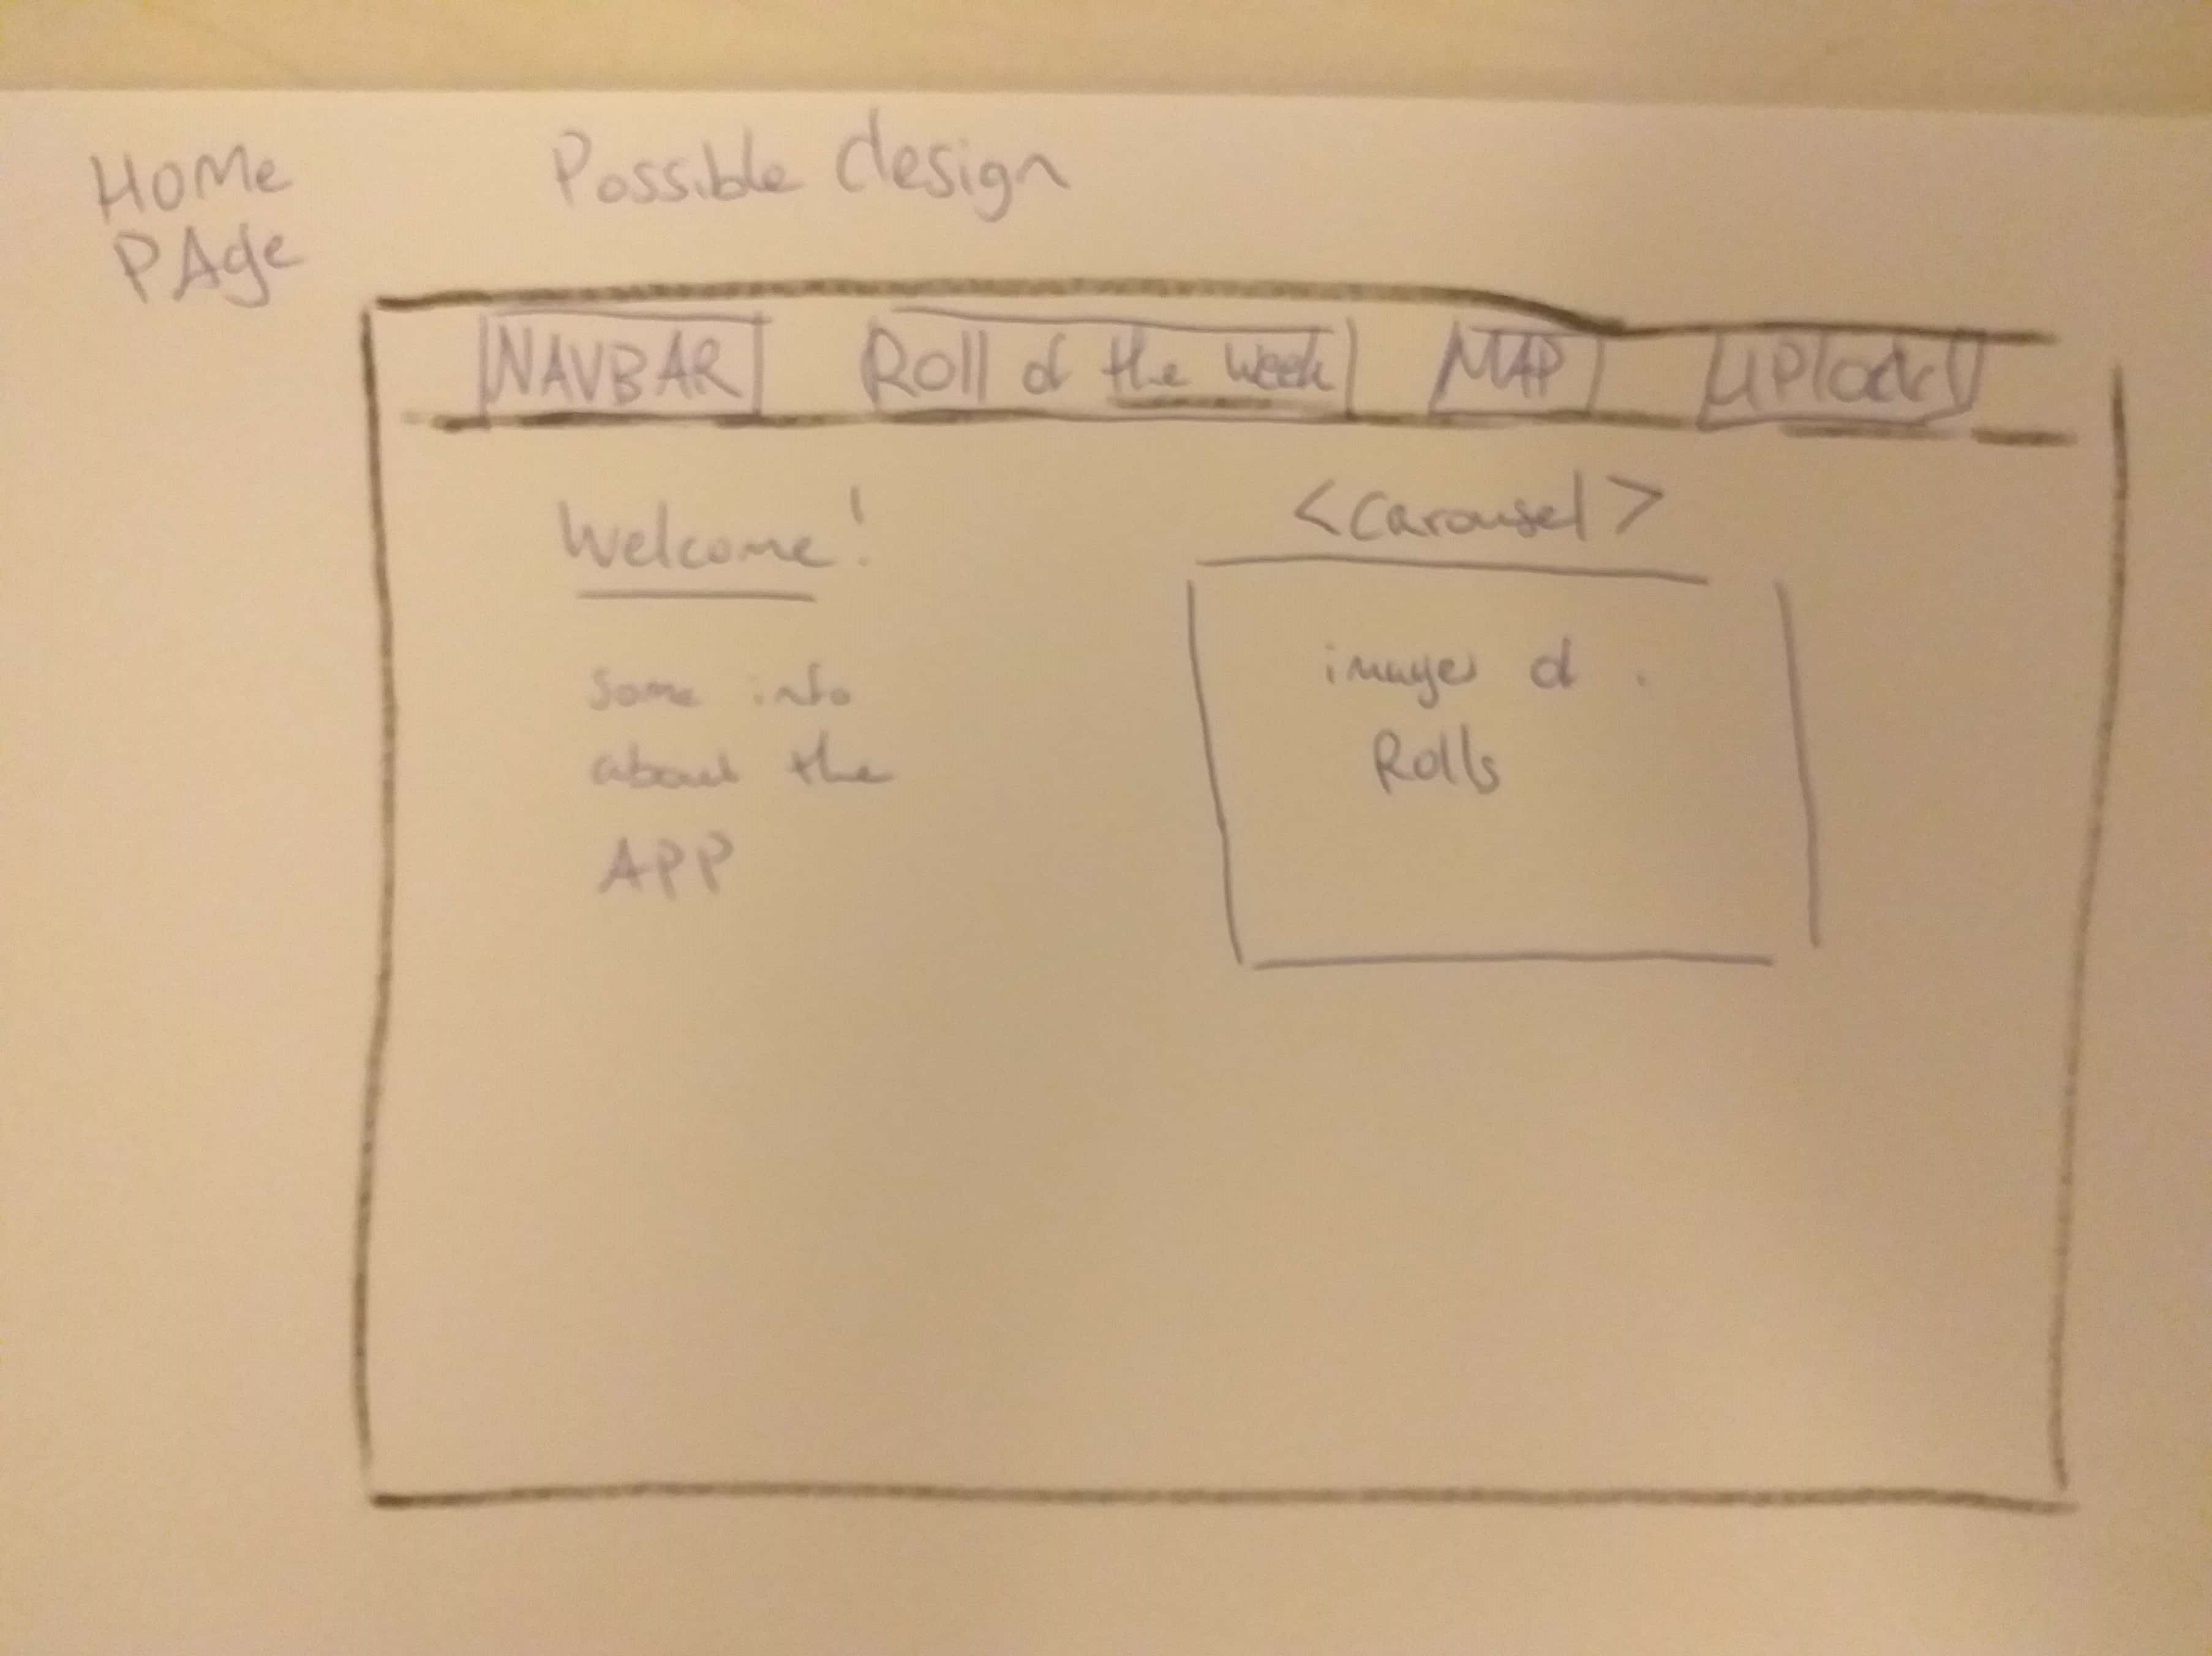 Home Page
Possible design
NAVBAR Roll of the week MAP Upload
Welcome!
<Carousel>
some info
about the
APP
images of
Rolls